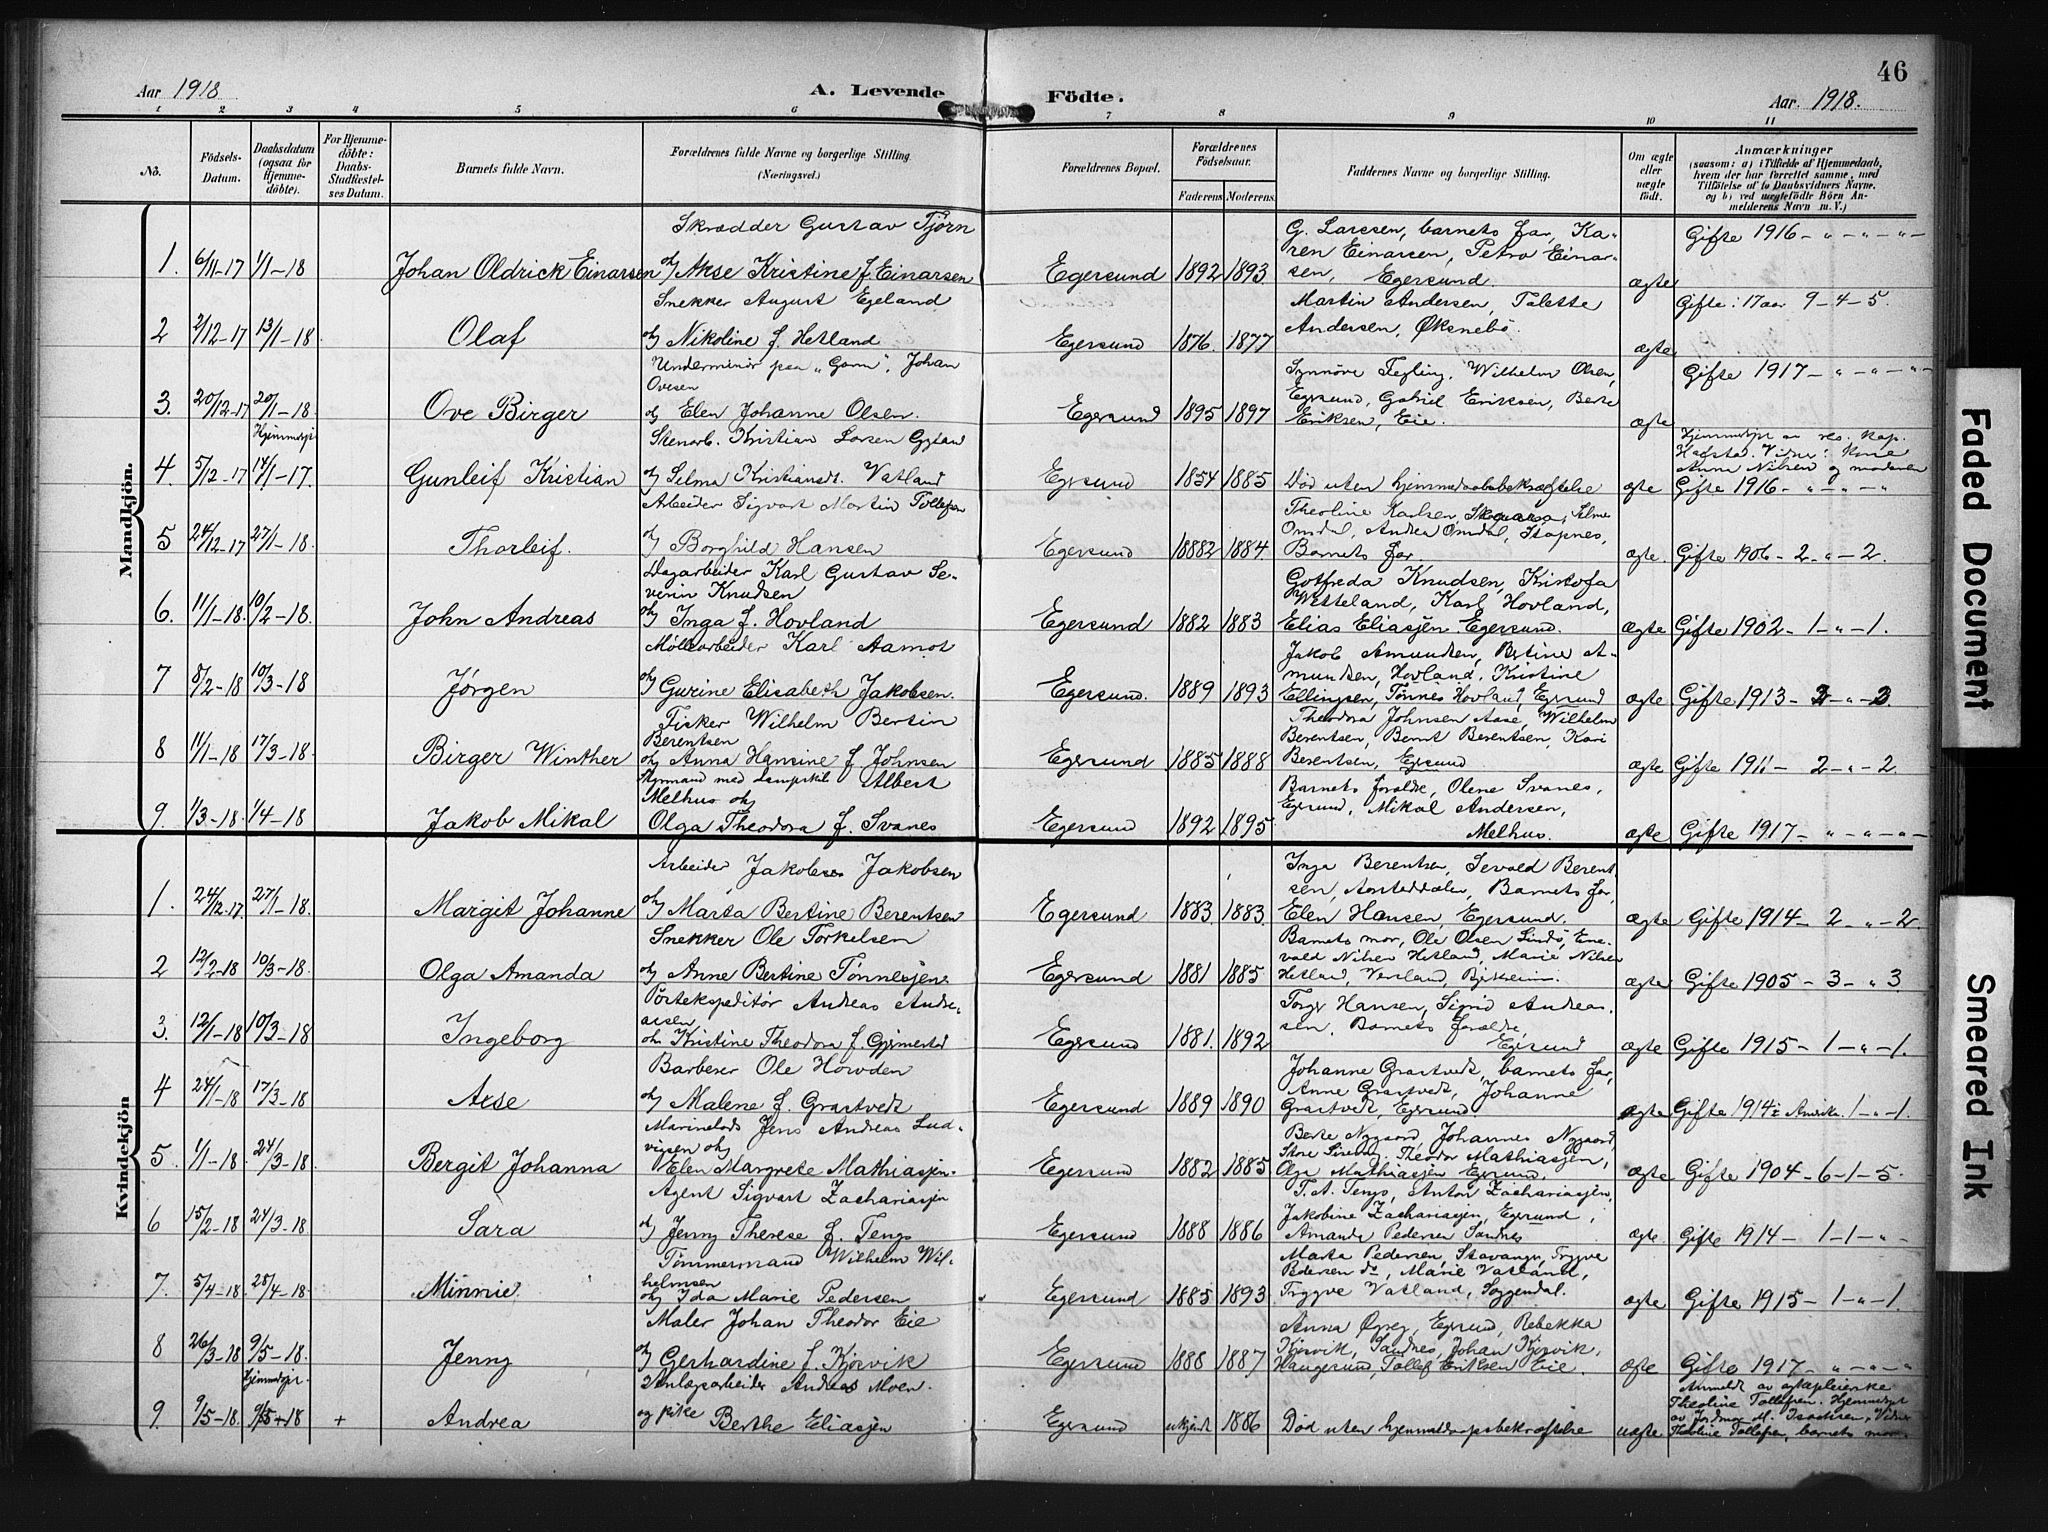 46
Aar 1918
A. Levende Födte.
Aar. 1918.
1 2 3 4 5 6 7 8 9 10 11
No.
Födsels-Datum.
Daabsdatum (ogsaa for Hjemme-döbte).
For Hjemme-döbte: Daabs-Stadfæstel-ses Datum.
Barnets fulde Navn.
Forældrenes fulde Navne og borgerlige Stilling. (Næringsvei.)
Forældrenes Bopæl.
Forældrenes Födselsaar.
Faderens Moderens
Faddernes Navne og borgerlige Stilling.
Om ægte eller uægte födt.
Anmærkninger
(saasom: a) i Tilfælde af Hjemmedaab,
hvem der har forrettet samme, med
Tilföielse af to Daabsvidners Navne.
og b) ved uægtefödte Börn An-
melderens Navn m. V.)
Mandkjön.
Skrædder Gustav Tjørn
G. Larssen, barnets far, Ka-
Gifte 1916 - " - " - " -
1. 6/11-17 1/1-18 Johan Oldrick Einarsen og Aase Kristine f. Einarsen Egersund 1892 1893
ren Einarsen, Petra Einar-
sen, Egersund. ægte
Snekker August Egeland
Martin Andersen, Talette
Gifte: 17 aar 9-4-5.
2 2/12-17 13/1-18 Olaf og Nikoline f. Hetland Egersund 1876. 1877 Andersen, Øksnebø. ægte
Underminør paa "Gann", Johan
Ovesen
Synnøve Tegling, Wilhelm Olsen,
Gifte 1917 - " - " - " -
3. 20/12-17 20/1-18 Ove Birger og Elen Johanne Olsen. Egersund 1895 1897
Egersund, Gabriel Eriksen, Berte
Eriksen, Eie. ægte
Hjemmedøpt
Stenarb. Kristian Larsen
Hjemmedøpt av res. kap.
4. 5/12-17 14/1-17. Gunleif Kristian og Selma Kristiansdt. Vatland Egersund 1854 1885 Død uten hjemmedaabsbekræftelse ægte Gifte 1916 - " - " - "
Anna Nilsen og moderen
Arbeider Sigvart Martin Tollefsen
Theoline Karlsen,
5 24/12-17 27/1-18. Thorleif. og Borghild Hansen Egersund 18882 1884.
Omdal, Andrea Omdal, Stapnes,
Barnets far. ægte Gifte 1906 - 2 - " - 2.
Dagarbeider Karl Gustav Se-
verin Knudsen
Gotfreda Knudsen, Kristofa
6. 11/1-18. 10/2-18. John Andreas og Inga f. Hovland Egersund 1882 1883
Wetteland, Karl Hovland,
Elias Eliassen Egersund. ægte Gifte 1902 - 1 - " - 1.
Møllearbeider Karl Aamot
Jakob Amundsen, Bertine A-
7 8/2-18 10/3-18 Jørgen og Gurine Elisabeth Jakobsen. Egersund. 1889 1893
mundsen, Hovland, Kristine
Ellingsen, Tønnes Hovland, Egersund ægte Gifte 1913 - 2 - " - 2
Fisker Wilhelm Bertin
Berentsen
Theodora Johnsen Aase, Wilhelm
8 11/1-18 17/3-18. Birger Winther og Anna Hansine f. Johnsen Egersund 1885 1888
Berentsen, Bernt Berentsen, Kari
Berentsen, Egersund ægte Gifte 1911 - 2 - " - 2.
Albert
Melhus og
Barnets foreldre, Olene Svanes,
9. 1/3-18. 1/4-18 Jakob Mikal Olga Theodora f. Svanes Egersund 1892 1895
Egersund, Mikal Andersen,
Melhus. ægte Gifte 1917 - " - " - " -
Kvindekjön
Arbeider Jakob Jakobsen
Inga Berentsen, Sevald Berent-
1. 24/12-17 27/1-18. Margit Johanne og Marta Bertine Berentsen Egersund 1883. 1883.
sen, Aastaddalen, Barnets far,
Elen Hansen, Egersund. ægte Gifte 1914 - 2 - " - 2.
Snekker Ole Torkelsen
Barnets mor, Ole Olsen Lindø, Ene-
2 12/2-18 10/3-18. Olga Amanda og Anne Bertine Tønnessen. Egersund 1881 1885
vald Nilsen Hetland, Marie Nilsen
Hetland, Vasland, Bjerkreim. ægte Gifte 1905 - 3 - " 3.
Postekspeditør Andreas Andre-
asen
Torger Hansen, Sigrid Andreas-
3. 12/1-18 10/3-18 Ingeborg og Kristine Theodora f. Gjermestad Egersund 1881. 1892
sen. Barnets foreldre,
Egersund ægte Gifte 1915 - 1 - " - 1.
Barberer Ole Hovden
Johanne Grastvedt, barnets far,
4 24/1-18 17/3-18 Aase og Malene f. Grastvedt Egersund 1889 1890
Anne Grastvedt, Johanne
Grastvedt, Egersund ægte Gifte 1914 i Amerika. 1 - " - 1.
Jens Andreas Lud-
vigsen og
Berte Nygaard, Johannes Nygaard,
5. 1/1-18. 24/3-18. Bergit Johanna Elen Margrete Mathiassen. Egersund 1882 1885
Theodor Mathiassen,
Olga Mathiassen Egersund. ægte Gifte 1904 - 6 - 1 - 5.
Agent Sigvart Zachariassen
T. A. Tengs, Anton Zachariassen,
6 15/2-18 24/3-18 Sara og Jenny Therese f. Tengs Egersund 1888 1886
Jakobine Zachariassen, Egersund,
Amanda Pedersen Sandnes ægte. Gifte 1914 - 1 - 1 - "
Tømmermand Wilhelm Wil-
helmsen
Marta Pedersen, Stavanger, Trygve
7. 5/4-18. 28/4-18 Minnie. og Ida Marie Pedersen Egersund 1885 1893
Pedersen do, Marie Vatland,
Tryggve Vatland, Soggendal. ægte Gifte 1915 - 1 - " - 1.
Maler Johan Theodor Eie
Anna Øgrey, Egersund, Rebekka
8 26/3-18 9/5-18. Jenny og Gerhardine f. Kjørvik Egersund 1888 1887
Kjørvik, Sandnes, Johan Kjørvik,
Haugesund, Tollef Eriksen Eie ægte Gifte 1917 - " - " - "
Hjemmedøpt.
Anlægsarbeider Andreas Moen.
9. 9/5-18. 9/5+18 + Andrea og pike Berthe Eliassen Egersund ukjendt 1886 Død uten hjemmedaapsbekræftelse uægte
Theoline Tollefsen. Hjemmedøpt
av Jordmor M. Isachsen, Vidner
Theoline Tollefsen, barnets mor.
Faded Document
Smeared Ink